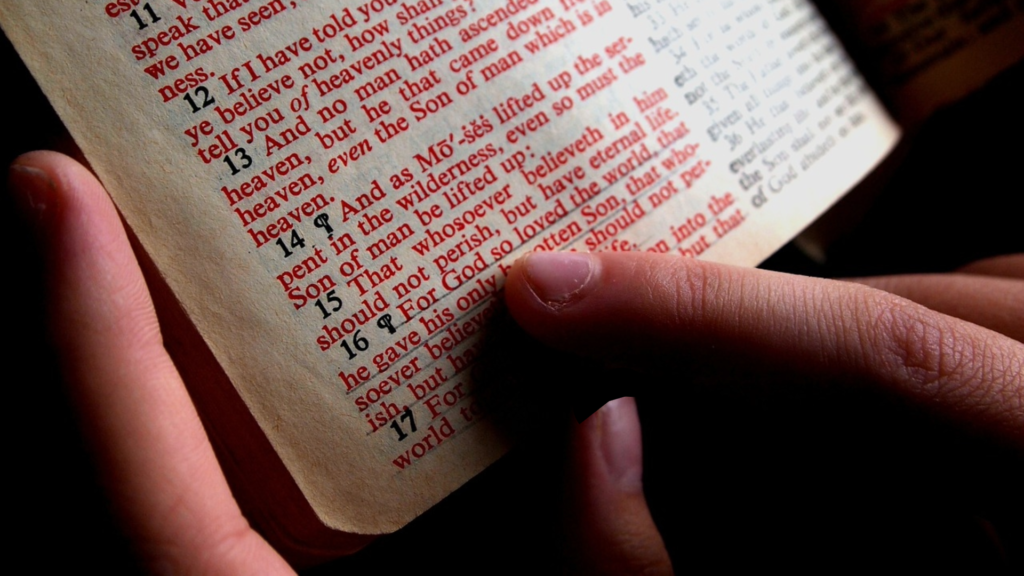 11
speak that
we have seen,
ness.
12 If I have told you
ye believe not, how shall
tell you of heavenly things?
13 And no man hath ascended
heaven, but he that came down
heaven, even the Son of man which is in
heaven.
14 ¶ And as Mō´-ṡĕṡ lifted up the ser-
pent in the wilderness, even so must the
Son of man be lifted up:
15 That whosoever believeth in him
should not perish, but have eternal life.
16 ¶ For God so loved the world, that
he gave his only otten Son, that who-
soever believe should not per-
ish, but ha life.
17 For on into the
world to but that
his
34
eth
not
35 The
given
36 He that
everlasting
the Son shall not
of God abideth